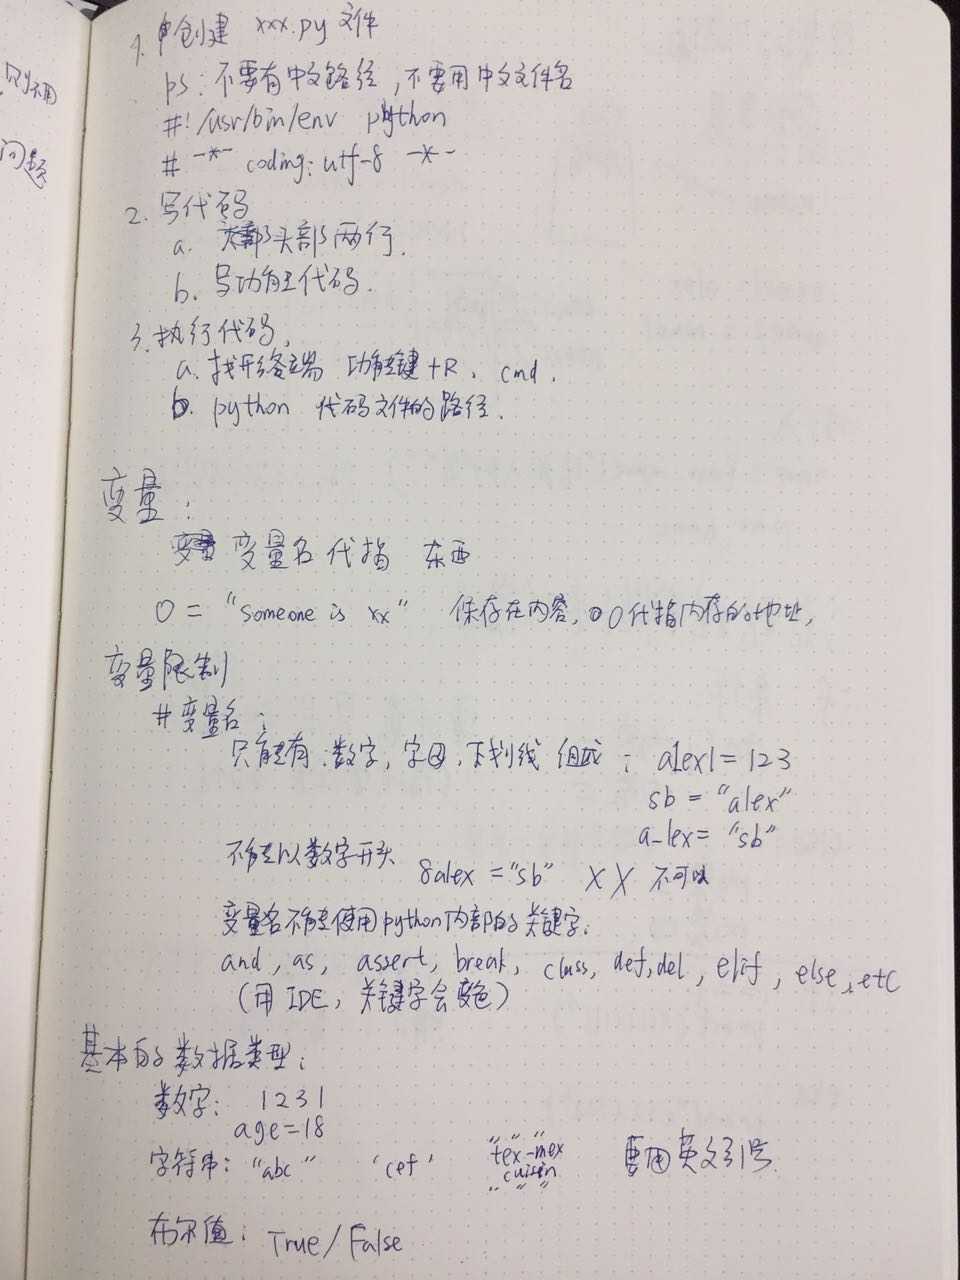 则不用
问题
1. 创建 xxx.py 文件
ps: 不要有中文路径, 不要用中文文件名
#! /usr/bin/env python
# -*- coding: utf-8 -*-
2. 写代码
a. 头部两行.
b. 写功能代码.
3. 执行代码,
a. 找开终端 功能键+R, cmd.
b. python 代码文件的路径.
变量:
变量名 代指 东西
O = "someone is xx" 保存在内容, O代指内存的地址,
变量限制
#变量名:
只能有:数字, 字母, 下划线 组成; alex1 = 123
sb = "alex"
a_lex = "sb"
不能以数字开头 8alex = "sb" X X 不可以
变量名不能使用python内部的关键字.
and, as, assert, break, class, def, del, elif, else, etc
(用 IDE, 关键字会变色)
基本的数据类型:
数字: 1231
age=18
字符串: "abc" 'cef' """tex-mex
cuisin
""" 要用英文引号.
布尔值: True/False